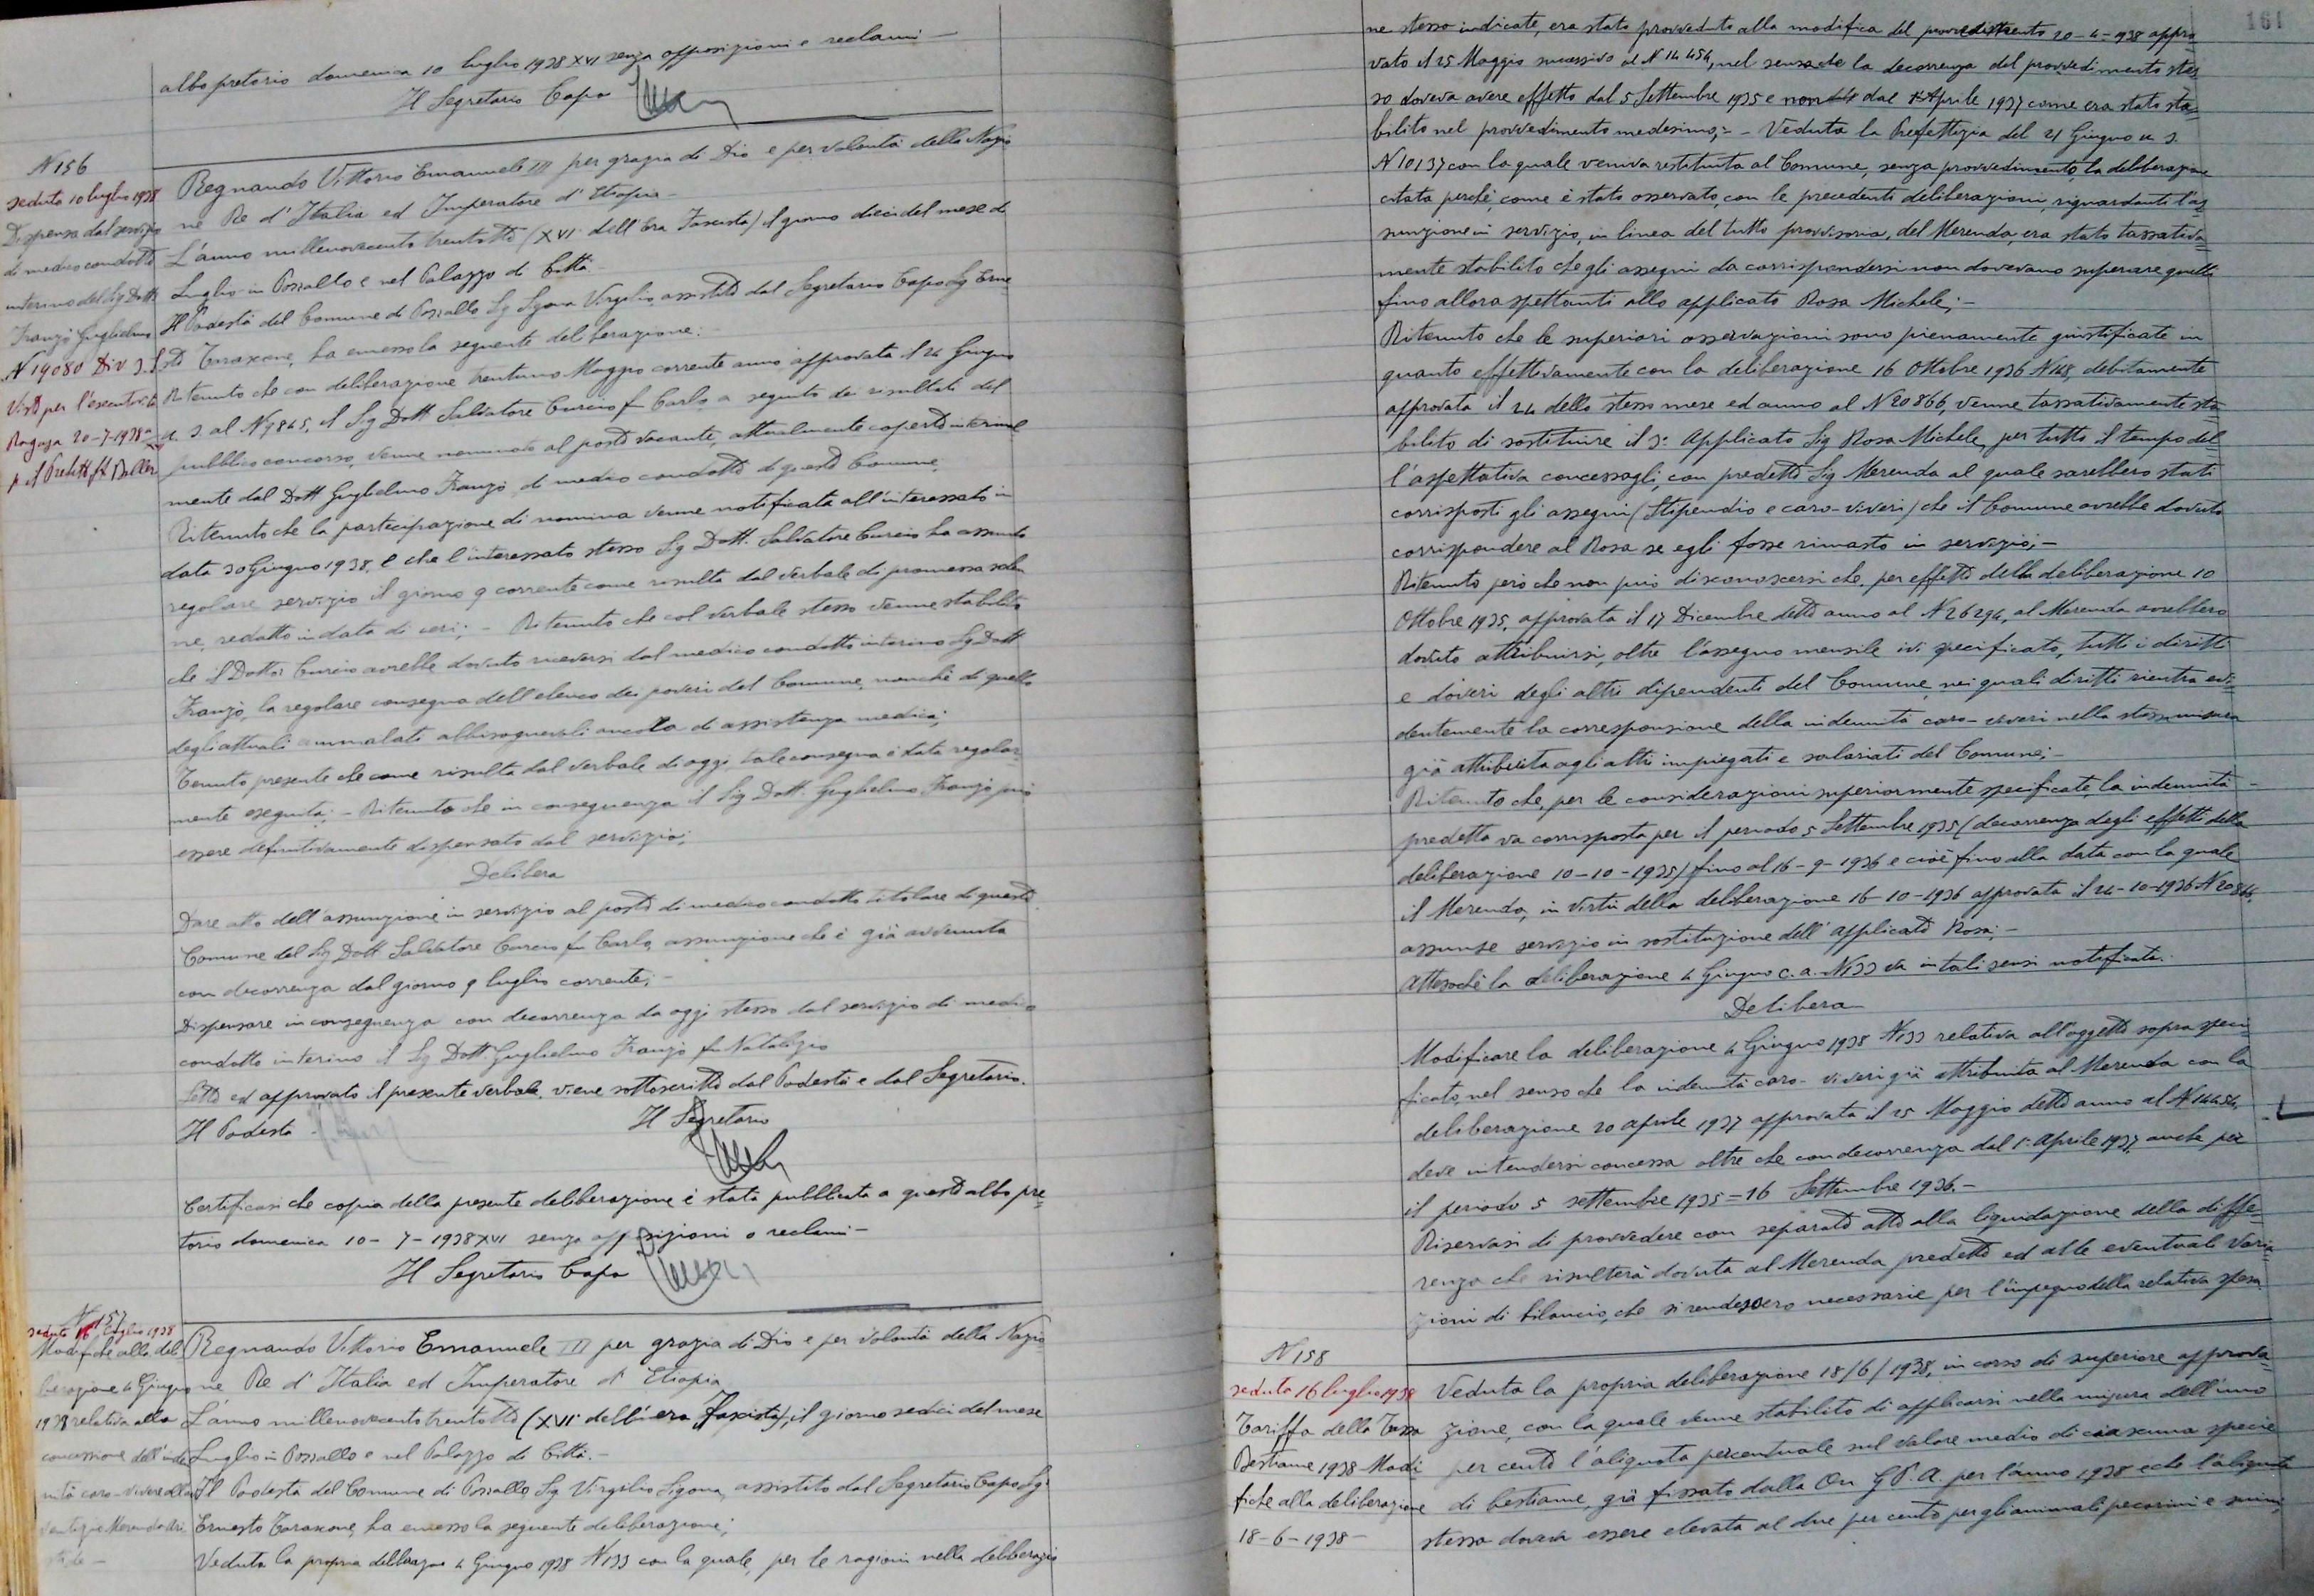 albo pretorio domenica 10 luglio 1938 XVI senza opposizioni o reclami -
Il Segretario Capo
N 156
seduta 10 luglio 1938
Dispensa dal servizio
di medico condotto
interino del Sig Dott
Franzò Guglielmo
N 19080 Div 3.
Visto per l'esecutività
Ragusa 20-7-1938
p il Prefetto
Regnando Vittorio Emanuele III per grazia di Dio e per volontà della Nazio
ne Re d'Italia ed Imperatore d'Etiopia -
L'anno millenovecentotrentotto (XVI dell'Era Fascista) il giorno dieci del mese di
Luglio in Pozzallo e nel Palazzo di Città -
Il Podestà del Comune di Pozzallo Sig Sgona Virgilio, assistito dal Segretario Capo Sig Erne
sto Tarascone, ha emesso la seguente deliberazione: -
Ritenuto che con deliberazione trentuno Maggio corrente anno approvata il 24 Giugno
u. s. al N 9845, il Sig Dott Salvatore Curcio fu Carlo a seguito dei risultati del
pubblico concorso, venne nominato al posto vacante, attualmente coperto interinal
mente dal Dott Guglielmo Franzò, di medico condotto di questo Comune;
Ritenuto che la partecipazione di nomina venne notificata all'interessato in
data 30 Giugno 1938, e che l'interessato stesso Sig Dott. Salvatore Curcio ha assunto
regolare servizio il giorno 9 corrente come risulta dal verbale di promessa solen
ne, redatto in data di ieri; - Ritenuto che col verbale stesso venne stabilito
che il Dottor Curcio avrebbe dovuto riceversi dal medico condotto interino Sig Dott
Franzò, la regolare consegna dell'elenco dei poveri del Comune, nonchè di quello
degli attuali ammalati abbisognevoli ancora di assistenza medica;
Tenuto presente che come risulta dal verbale di oggi, tale consegna è stata regolar=
mente eseguita; - Ritenuto che in conseguenza il Sig Dott. Guglielmo Franzò può
essere definitivamente dispensato dal servizio;
Delibera
Dare atto dell'assunzione in servizio al posto di medico condotto titolare di questo
Comune del Sig Dott Salvatore Curcio fu Carlo, assunzione che è già avvenuta
con decorrenza dal giorno 9 luglio corrente; -
Dispensare in conseguenza con decorrenza da oggi stesso dal servizio di medico
condotto interino il Sig Dott Guglielmo Franzò fu Natalizio
Letto ed approvato il presente verbale, viene sottoscritto dal Podestà e dal Segretario.
Il Podestà Il Segretario
Certificasi che copia della presente deliberazione è stata pubblicata a questo albo pre=
torio domenica 10-7-1938 XVI senza opposizioni o reclami -
Il Segretario Capo
N 157
seduta 16 luglio 1938
Modifiche alla deli
berazione 4 Giugno
1938 relativa alla
concessione dell'inden
nità caro-viveri
Regnando Vittorio Emanuele III per grazia di Dio e per volontà della Nazio=
ne Re d'Italia ed Imperatore d'Etiopia
L'anno millenovecentotrentotto (XVI dell'era fascista), il giorno sedici del mese
Luglio in Pozzallo e nel Palazzo di Città. -
Il Podestà del Comune di Pozzallo Sig Virgilio Sgona, assistito dal Segretario Capo Sig
Ernesto Tarascone, ha emesso la seguente deliberazione;
Veduta la propria deliberazione 4 Giugno 1938 N 133 con la quale, per le ragioni nella deliberazio
161
ne stesso indicate, era stato provveduto alla modifica del provvedimento 20-4-1938 appro
vato il 25 Maggio successivo al N 14454, nel senso che la decorrenza del provvedimento stes
so doveva avere effetto dal 5 Settembre 1935 e non dal Aprile 1937 come era stato sta=
bilito nel provvedimento medesimo; - Veduta la Prefettizia del 21 Giugno u. s.
N 10137 con la quale veniva restituita al Comune, senza provvedimento, la deliberazione
citata perchè, come è stato osservato, con le precedenti deliberazioni, riguardanti l'as=
sunzione in servizio, in linea del tutto provvisoria, del Merenda, era stato tassativa=
mente stabilito che gli assegni da corrispondersi non dovevano superare quelli
fino allora spettanti allo applicato Rosa Michele; -
Ritenuto che le superiori osservazioni sono pienamente giustificate in
quanto effettivamente con la deliberazione 16 Ottobre 1936 N 148, debitamente
approvata il 24 dello stesso mese ed anno al N 20866, venne tassativamente sta
bilito di sostituire il 3° Applicato Sig Rosa Michele, per tutto il tempo del=
l'aspettativa concessagli, con predetto Sig Merenda al quale sarebbero stati
corrisposti gli assegni (Stipendio e caro-viveri) che il Comune avrebbe dovuto
corrispondere al Rosa se egli fosse rimasto in servizio; -
Ritenuto però che non può disconoscersi che, per effetto della deliberazione 10
Ottobre 1935, approvata il 17 Dicembre detto anno al N 26294, al Merenda avrebbero
dovuto attribuirsi, oltre l'assegno mensile ivi specificato, tutti i diritti
e doveri degli altri dipendenti del Comune, nei quali diritti rientra evi=
dentemente la corresponsione della indennità caro-viveri nella stessa misura
già attribuita agli altri impiegati e salariati del Comune; -
Ritenuto che, per le considerazioni superiormente specificate, la indennità
predetta va corrisposta per il periodo 5 Settembre 1935 (decorrenza degli effetti della
deliberazione 10-10-1935) fino al 16-9-1936 e cioè fino alla data con la quale
il Merenda, in virtù della deliberazione 16-10-1936 approvata il 24-10-1936 N 20866,
assunse servizio in sostituzione dell'applicato Rosa; -
Attesochè la deliberazione 4 Giugno c. a. N 133 va in tali sensi notificata.
Delibera
Modificare la deliberazione 4 Giugno 1938 N 133 relativa all'oggetto sopra speci=
ficato, nel senso che la indennità caro-viveri già attribuita al Merenda con la
deliberazione 20 aprile 1937 approvata il 25 Maggio detto anno al N 14454,
deve intendersi concessa oltre che con decorrenza dal 1° Aprile 1937, anche per
il periodo 5 settembre 1935=16 Settembre 1936. -
Riservasi di provvedere con separato atto alla liquidazione della diffe=
renza che risulterà dovuta al Merenda predetto ed alle eventuali varia
zioni di bilancio, che si rendessero necessarie per l'impegno della relativa spesa.
N 158
seduta 16 luglio 1938
Tariffa della Tassa
Bestiame 1938 Modi
fiche alla deliberazione
18-6-1938 -
Veduta la propria deliberazione 18/6/1938, in corso di superiore approva=
zione, con la quale venne stabilito di applicarsi nella misura dell'uno
per cento l'aliquota percentuale sul valore medio di ciascuna specie
di bestiame, già fissato dalla On G P. A. per l'anno 1938 e che l'aliquota
stessa doveva essere elevata al due per cento per gli animali pecorini e suini,